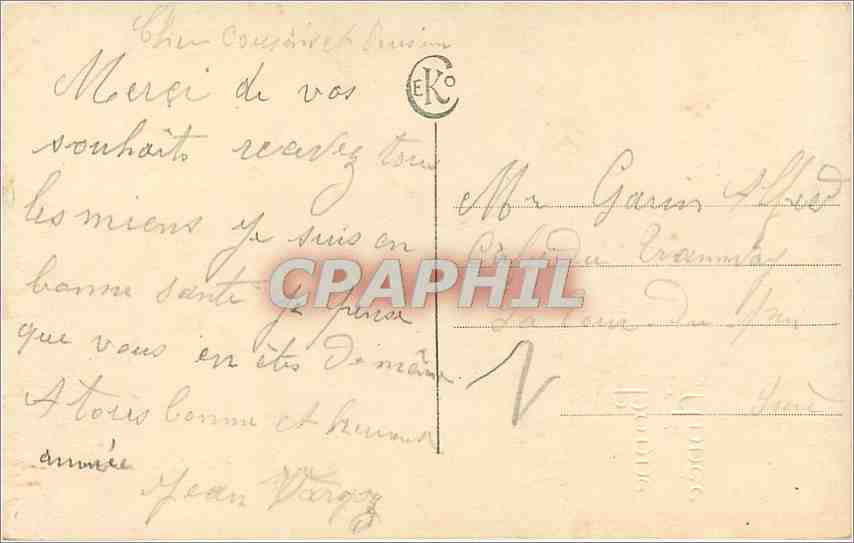 Cher Cousin et Cousine
Merçi de vos
souhaits recevez tous
les miens Je suis en
bonne santé Je pense
que vous en êtes de même.
A tous bonne et heureuse
année
Jean
EKO
Mr Garin Alfred
du Tramway
La Tour du Pin
Isère
CPAPHIL